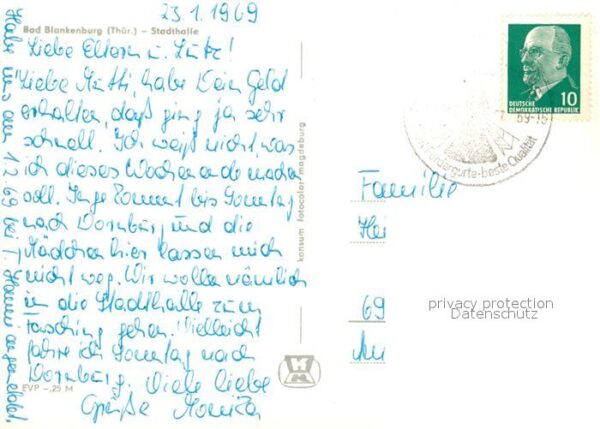 23.1.1969
Bad Blankenburg (Thür.) – Stadthalle
Liebe Eltern u. Lutz!
Liebe Mutti, habe Dein Geld
erhalten, daß ging ja sehr
schnell. Ich weiß nicht, was
ich dieses Wochenende machen
soll. kommt bis Sonntag
nach Dornburg und die
Mädchen hier lassen mich
nicht weg. Wir wollen nämlich
in die Stadthalle zum
Fasching gehen. Vielleicht
fahre ich Sonntag nach
Dornburg. Viele liebe
Grüße Monika
EVP –,25 M
Habe uns am 1.2.69 bei angemeldet.
konsum fotocolor magdeburg
DEUTSCHE
DEMOKRATISCHE REPUBLIK
10
69-15
beste Qualität
Familie
Hei
69
privacy protection
Datenschutz